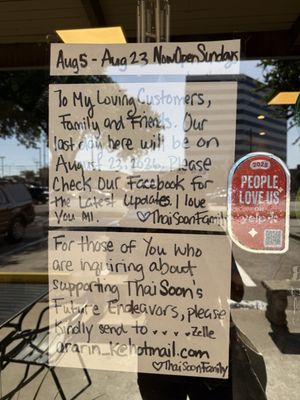 Aug 5 - Aug 23 Now Open Sundays
To My Loving Customers,
Family and Friends. Our
last day here will be on
August 23, 2026. Please
Check Our Facebook for
the Latest Updates. I love
You All. ♡Thai Soon Family
For those of You who
are inquiring about
supporting Thai Soon's
Future Endeavors, please
Kindly send to . . . . Zelle
ararin_k@hotmail.com
♡Thai Soon Family
2025
PEOPLE
LOVE US
yelp